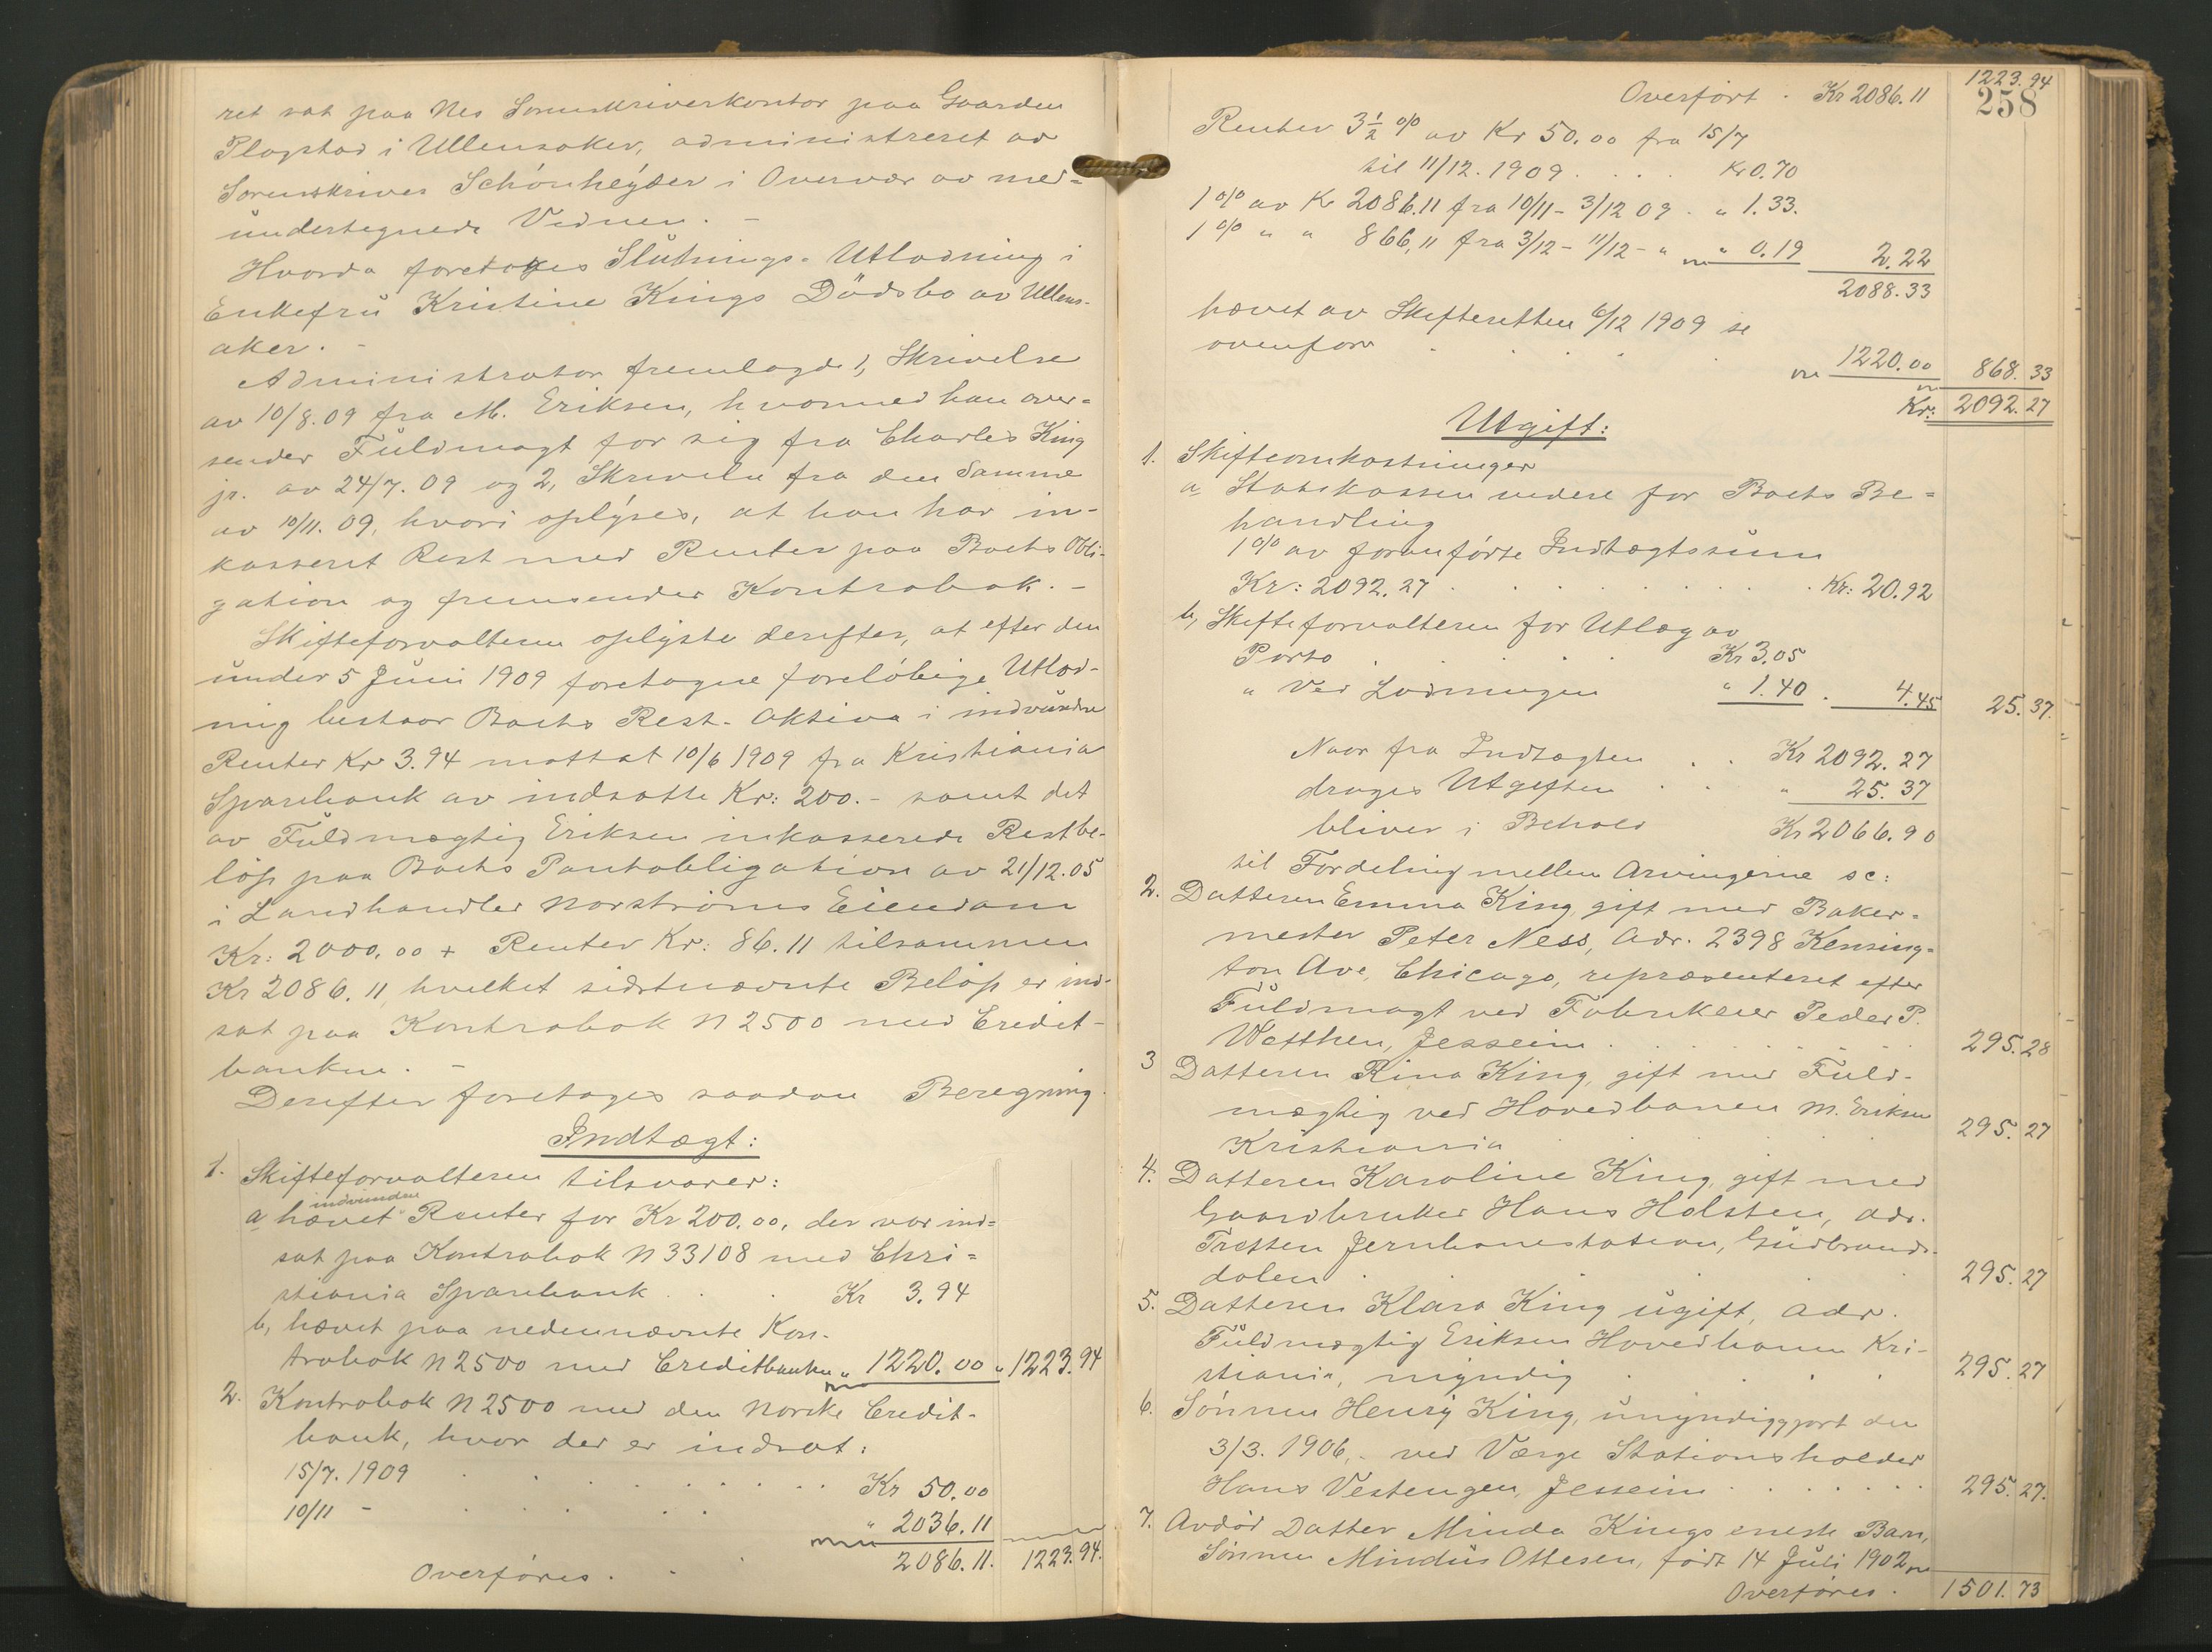 ret sat paa Nes Sorenskriverkontor paa Gaarden
Plogstad i Ullensaker, administreret av
Sorenskriver Schönheyder i Overvær av med-
undertegnede Vidner. -
Hvorda foretoges Slutnings-Utlodning i
Enkefru Kristine Kings Dödsbo av Ullens-
aker. -
Administrator fremlagde 1, Skrivelse
av 10/8.09 fra M. Eriksen, hvormed han over-
sender Fuldmagt for sig fra Charles King
jr. av 24/7.09 og 2, Skrivelse fra den Samme
av 10/11.09, hvori oplyses, at han har in-
kasseret Rest med Renter paa Boets Obli-
gation og fremsender Kontrabok. -
Skifteforvalteren oplyste derefter, at efter den
under 5 Juni 1909 foretagne foreløbige Utlod-
ning bestaar Boets Rest-Aktiva i indvundne
Renter Kr 3.94 mottat 10/6 1909 fra Kristiania
Sparebank av indsatte Kr: 200.- samt det
av Fuldmægtig Eriksen inkasserede Restbe-
løp paa Boets Pantobligation av 21/12.05
i Landhandler Norstrøms Eiendom
Kr: 2000.00 + Renter Kr: 86.11 tilsammen
Kr 2086.11, hvilket sidstnævnte Beløp er ind-
sat paa Kontrabok N 2500 med Credit-
banken. -
Derefter foretoges saadan Beregning
Indtægt:
1. Skifteforvalteren tilsvarer:
indvundne
a hævet Renter for Kr 200.00, der var ind-
sat paa Kontrabok N 33108 med Chri-
stiania Sparebank . . Kr 3.94
b, hævet paa nedennævnte Kon-
trabok N 2500 med Creditbanken " 1220.00 " 1223.94
2. Kontrabok N 2500 med den Norske Credit-
bank, hvor der er indsat:
15/7.1909 . . . . . Kr 50.00
10/11 - . . . . " 2036.11
2086.11. 1223.94.
Overføres . .
Overført . Kr 2086.11 1223.94
258
Renter 3½ % av Kr 50.00 fra 15/7
til 11/12.1909 . . . . Kr 0.70
1 % av Kr 2086.11 fra 10/11 - 3/12 09 . " 1.33.
1 % " " 866,11 fra 3/12 - 11/12 - " " 0.19 2.22
2088.33
hævet av Skifteretten 6/12 1909 se
ovenfor . . . . . 1220.00 868.33
Kr: 2092.27
Utgift:
1. Skifteomkostninger
a, Statskassen videre for Boets Be-
handling
1 % av foranførte Indtægtssum
Kr: 2092.27 . . . . . . Kr: 20.92
b, Skifteforvalteren for Utlæg av
Porto . . . . Kr 3.05
" Ved Lodningen " 1.40 . 4.45 25.37.
Naar fra Indtægten . . Kr 2092.27
drages Utgiften . . " 25.37
bliver i Behold Kr 2066.90
til Fordeling mellem Arvingerne sc:
2. Datteren Emma King, gift med Baker-
mester Peter Ness, Adr. 2398 Kensing-
ton Ave, Chicago, repræsenteret efter
Fuldmagt ved Fabrikeier Peder P.
Watthen, Jessheim . . . . . . 295.28
3 Datteren Rina King, gift med Fuld-
mægtig ved Hovedbanen M. Eriksen
Kristiania . . . . 295.27
4. Datteren Karoline King, gift med
Gaardbruker Hans Holsten, adr.
Tretten Jernbanestation, Gudbrands-
dalen . . . . 295.27
5. Datteren Klara King ugift, adr.
Fuldmægtig Eriksen Hovedbanen Kri-
stiania, myndig . . . . 295.27
6. Sönnen Henry King, umyndiggjort den
3/3.1906, - ved Værge Stationsholder
Hans Vestengen, Jessheim . . . . . 295.27.
7. Avdød Datter Minda Kings eneste Barn,
Sönnen Mindus Ottesen, født 14 Juli 1902
Overføres . 1501.73